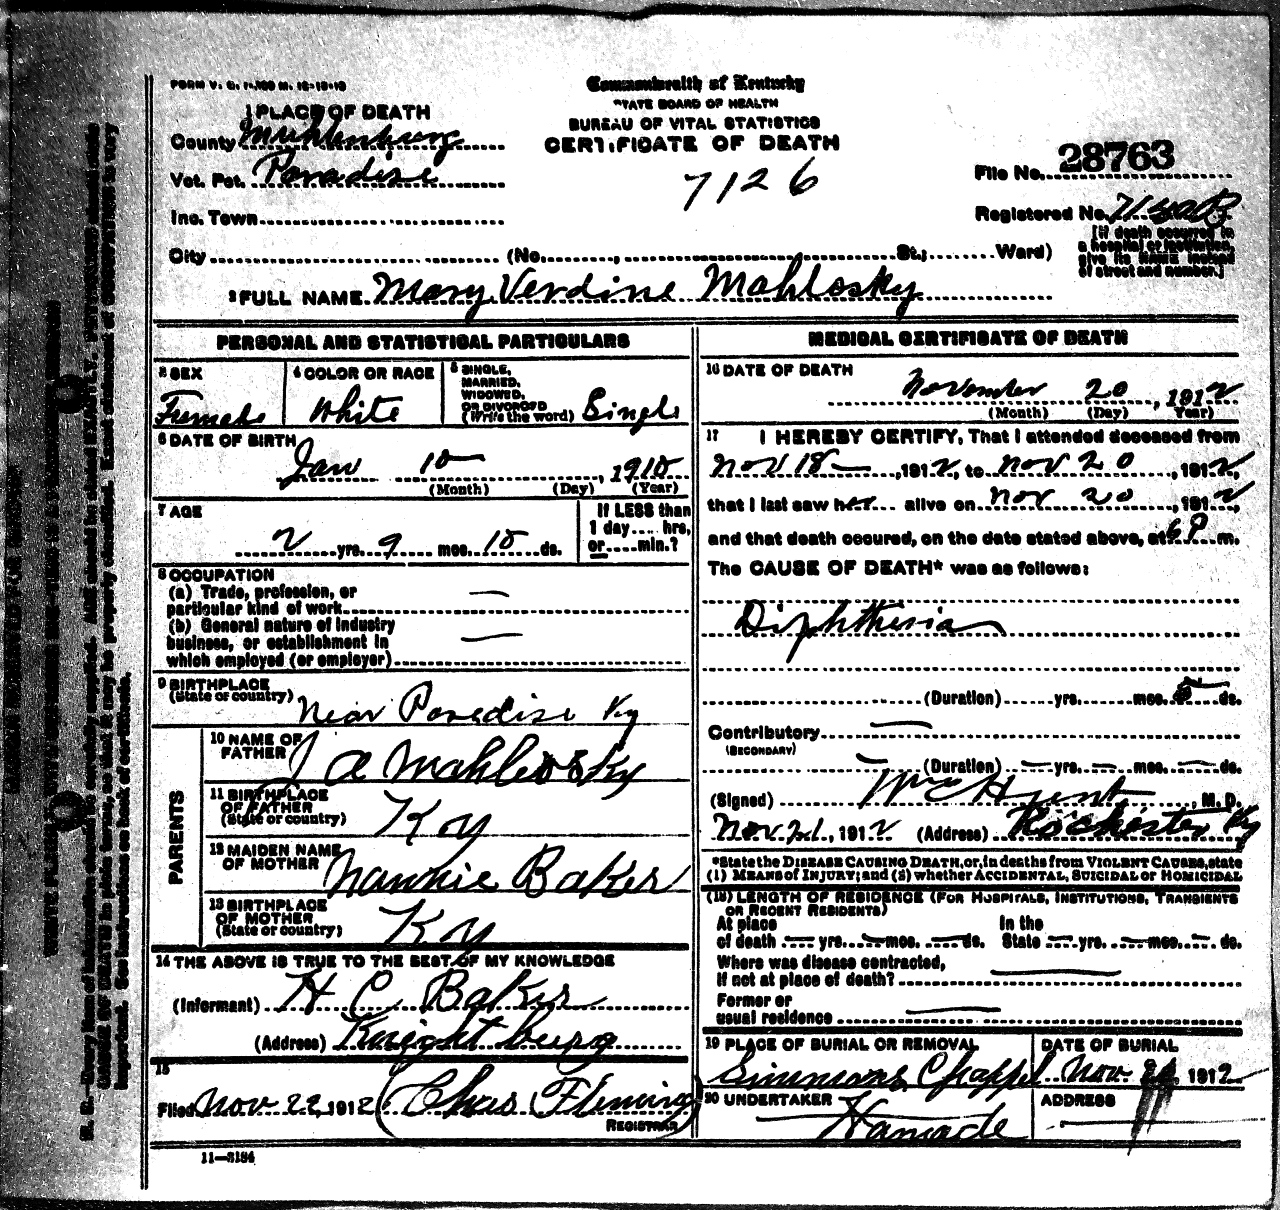 FORM V. S. 1-
Commonwealth of Kentucky
STATE BOARD OF HEALTH
BUREAU OF VITAL STATISTICS
CERTIFICATE OF DEATH
1 PLACE OF DEATH
County Muhlenburg
Vot. Pct. Paradise
7126
File No. 28763
Inc. Town
Registered No.
[If death occurred in
a hospital or institution,
give its NAME instead
of street and number.]
City (No. , St.; Ward)
2 FULL NAME Mary Verdine Mahlosky
PERSONAL AND STATISTICAL PARTICULARS
3 SEX Female
4 COLOR OR RACE White
5 SINGLE, MARRIED, WIDOWED, OR DIVORCED (Write the word) Single
6 DATE OF BIRTH Jan 10, 1910
(Month) (Day) (Year)
7 AGE 2 yrs. 9 mos. 10 ds.
If LESS than 1 day.... hrs, or.....min.?
8 OCCUPATION
(a) Trade, profession, or
particular kind of work —
(b) General nature of industry
business, or establishment in
which employed (or employer) —
9 BIRTHPLACE
(State or country) Near Paradise Ky
PARENTS
10 NAME OF FATHER J A Mahlosky
11 BIRTHPLACE OF FATHER (State or country) Ky
12 MAIDEN NAME OF MOTHER Nannie Baker
13 BIRTHPLACE OF MOTHER (State or country) Ky
14 THE ABOVE IS TRUE TO THE BEST OF MY KNOWLEDGE
(Informant) H C Baker
(Address) Knightburg
15
Filed Nov 22, 1912 Chas Fleming
REGISTRAR
11—3184
MEDICAL CERTIFICATE OF DEATH
16 DATE OF DEATH
November 20, 1912
(Month) (Day) Year)
17 I HEREBY CERTIFY, That I attended deceased from
Nov 18, 1912, to Nov 20, 1912,
that I last saw her alive on Nov 20, 1912,
and that death occured, on the date stated above, at 6 P m.
The CAUSE OF DEATH* was as follows:
Diphtheria
(Duration) yrs. mos. 5 ds.
Contributory —
(SECONDARY)
— (Duration) — yrs. — mos. — ds.
(Signed) , M. D.
Nov 21, 1912 (Address) Rochester Ky
*State the DISEASE CAUSING DEATH, or, in deaths from VIOLENT CAUSES, state
(1) MEANS of INJURY; and (2) whether ACCIDENTAL, SUICIDAL or HOMICIDAL
(18) LENGTH OF RESIDENCE (FOR HOSPITALS, INSTITUTIONS, TRANSIENTS
OR RECENT RESIDENTS)
At place In the
of death — yrs. — mos. — ds. State — yrs. — mos. — ds.
Where was disease contracted,
If not at place of death? —
Former or
usual residence —
19 PLACE OF BURIAL OR REMOVAL
Simmons Chappel
DATE OF BURIAL
Nov , 1912
20 UNDERTAKER
Hamade
ADDRESS